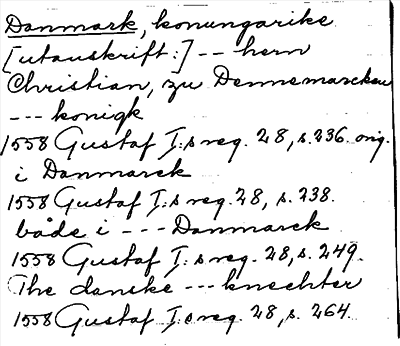 Danmark, konungarike
[utanskrift:] -- hern
Christian, zu Dennemarcken
--- konigk
1558 Gustaf I:s reg. 28, s. 236. orig.
i Danmarck
1558 Gustaf I:s reg. 28, s. 238.
både i --- Danmarck
1558 Gustaf I:s reg. 28, s. 249.
The danske --- knechter
1558 Gustaf I:s reg. 28, s. 264.